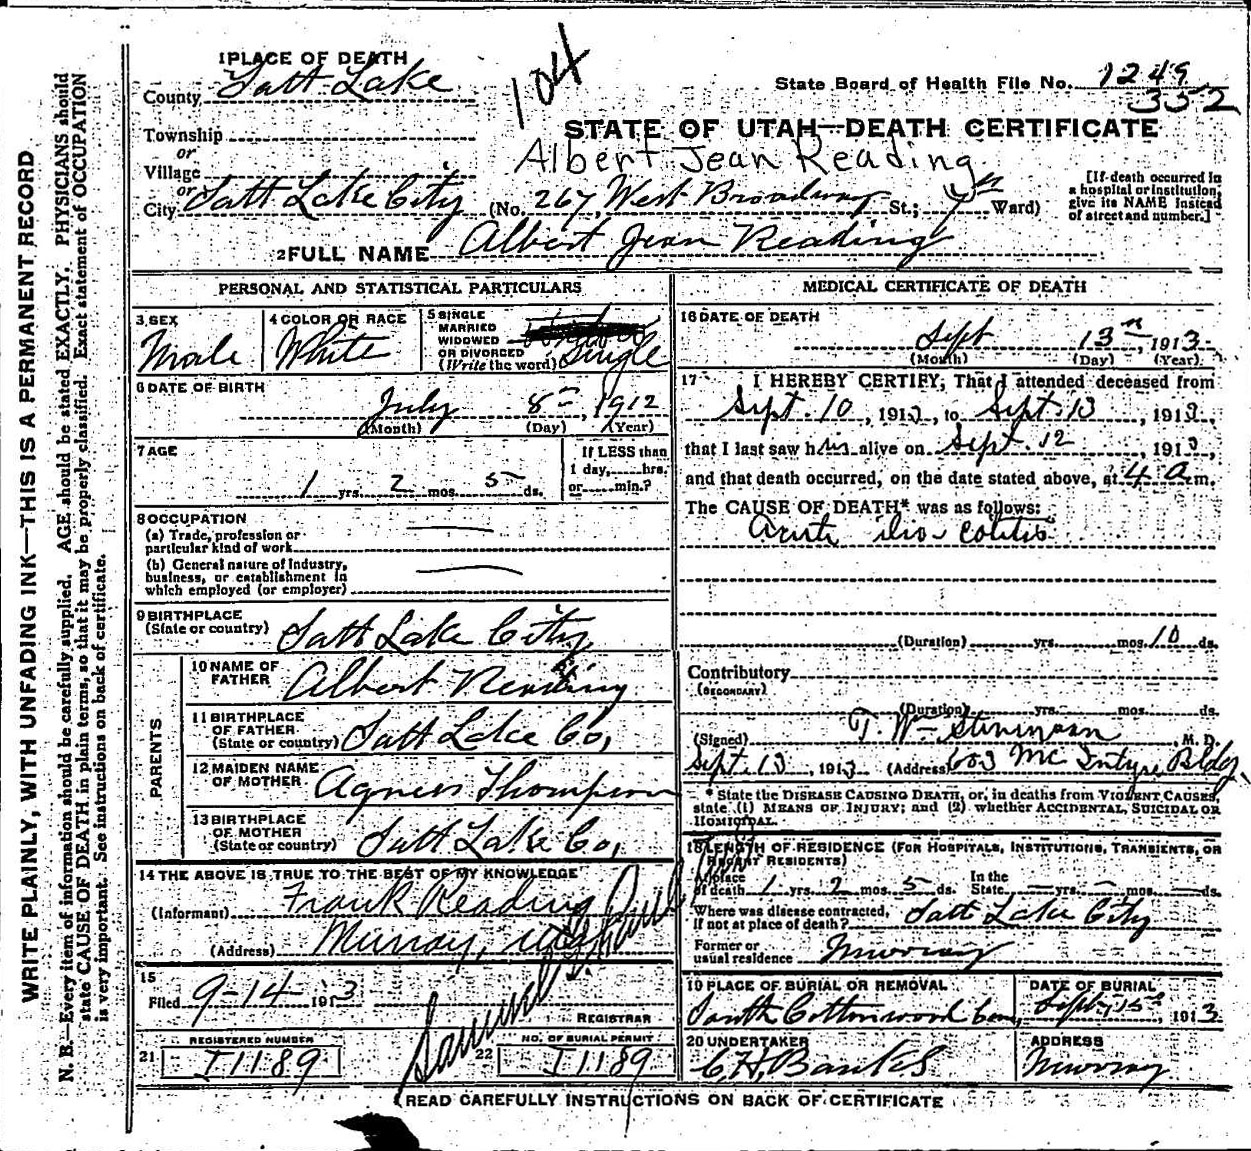 WRITE PLAINLY, WITH UNFADING INK—THIS IS A PERMANENT RECORD
N. B.—Every item of information should be carefully supplied. AGE should be stated EXACTLY. PHYSICIANS should
state CAUSE OF DEATH in plain terms, so that it may be properly classified. Exact statement of OCCUPATION
is very important. See instructions on back of certificate.
1 PLACE OF DEATH
County Salt Lake
Township
or
Village
or
City Salt Lake City (No. 267, West Broadway St.; 7th Ward)
104
State Board of Health File No. 1249
352
STATE OF UTAH—DEATH CERTIFICATE
Albert Jean Reading
[If death occurred in
a hospital or institution,
give its NAME instead
of street and number.]
2 FULL NAME Albert Jean Reading
PERSONAL AND STATISTICAL PARTICULARS
3 SEX
Male
4 COLOR OR RACE
White
5 SINGLE
MARRIED
WIDOWED
OR DIVORCED
(Write the word) Single
6 DATE OF BIRTH
July 8th, 1912
(Month) (Day) (Year)
7 AGE
1 yrs. 2 mos. 5 ds.
If LESS than
1 day, hrs.
or min.?
8 OCCUPATION
(a) Trade, profession or
particular kind of work
(b) General nature of Industry,
business, or establishment in
which employed (or employer)
9 BIRTHPLACE
(State or country) Salt Lake City
PARENTS
10 NAME OF
FATHER Albert Reading
11 BIRTHPLACE
OF FATHER
(State or country) Salt Lake Co,
12 MAIDEN NAME
OF MOTHER Agnes Thompson
13 BIRTHPLACE
OF MOTHER
(State or country) Salt Lake Co,
14 THE ABOVE IS TRUE TO THE BEST OF MY KNOWLEDGE
(Informant) Frank Reading
(Address) Murray, Utah
15
Filed 9-14 1913
Samuel G. Paul
REGISTRAR
REGISTERED NUMBER
21 I1189
NO. OF BURIAL PERMIT
22 I1189
MEDICAL CERTIFICATE OF DEATH
16 DATE OF DEATH
Sept 13th, 1913
(Month) (Day) (Year)
17 I HEREBY CERTIFY, That I attended deceased from
Sept. 10, 1913, to Sept. 13, 1913,
that I last saw him alive on Sept. 12, 1913,
and that death occurred, on the date stated above, at 4 a m.
The CAUSE OF DEATH* was as follows:
Acute ileo-colitis
(Duration) yrs. mos. 10 ds.
Contributory
(SECONDARY)
(Duration) yrs. mos. ds.
(Signed) T. Wm Stevenson, M. D.
Sept. 13, 1913 (Address) 603 McIntyre Bldg
* State the DISEASE CAUSING DEATH, or, in deaths from VIOLENT CAUSES,
state (1) MEANS OF INJURY; and (2) whether ACCIDENTAL, SUICIDAL OR
HOMICIDAL.
18 LENGTH OF RESIDENCE (FOR HOSPITALS, INSTITUTIONS, TRANSIENTS, OR
RECENT RESIDENTS)
At place
of death 1 yrs. 2 mos. 5 ds. In the
State yrs. mos. ds.
Where was disease contracted,
if not at place of death? Salt Lake City
Former or
usual residence Murray
19 PLACE OF BURIAL OR REMOVAL
South Cottonwood Cem,
DATE OF BURIAL
Sept. 15th, 1913
20 UNDERTAKER
C. H. Banks
ADDRESS
Murray
READ CAREFULLY INSTRUCTIONS ON BACK OF CERTIFICATE